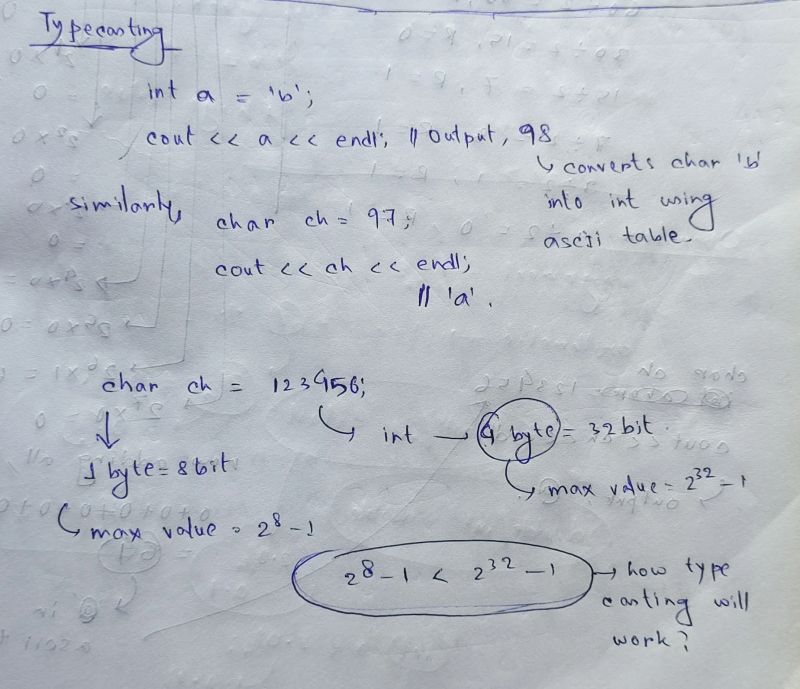 Typecasting
int a = 'b';
cout << a << endl; // Output, 98
↳ converts char 'b'
into int using
ascii table.
similarly,
char ch = 97;
cout << ch << endl;
// 'a'.
char ch = 123456;
↳ int → 4 byte = 32 bit.
↓
1 byte = 8 bit
↳ max value = 2³² - 1
↳ max value = 2⁸ - 1
2⁸ - 1 < 2³² - 1 → how type
casting will
work?